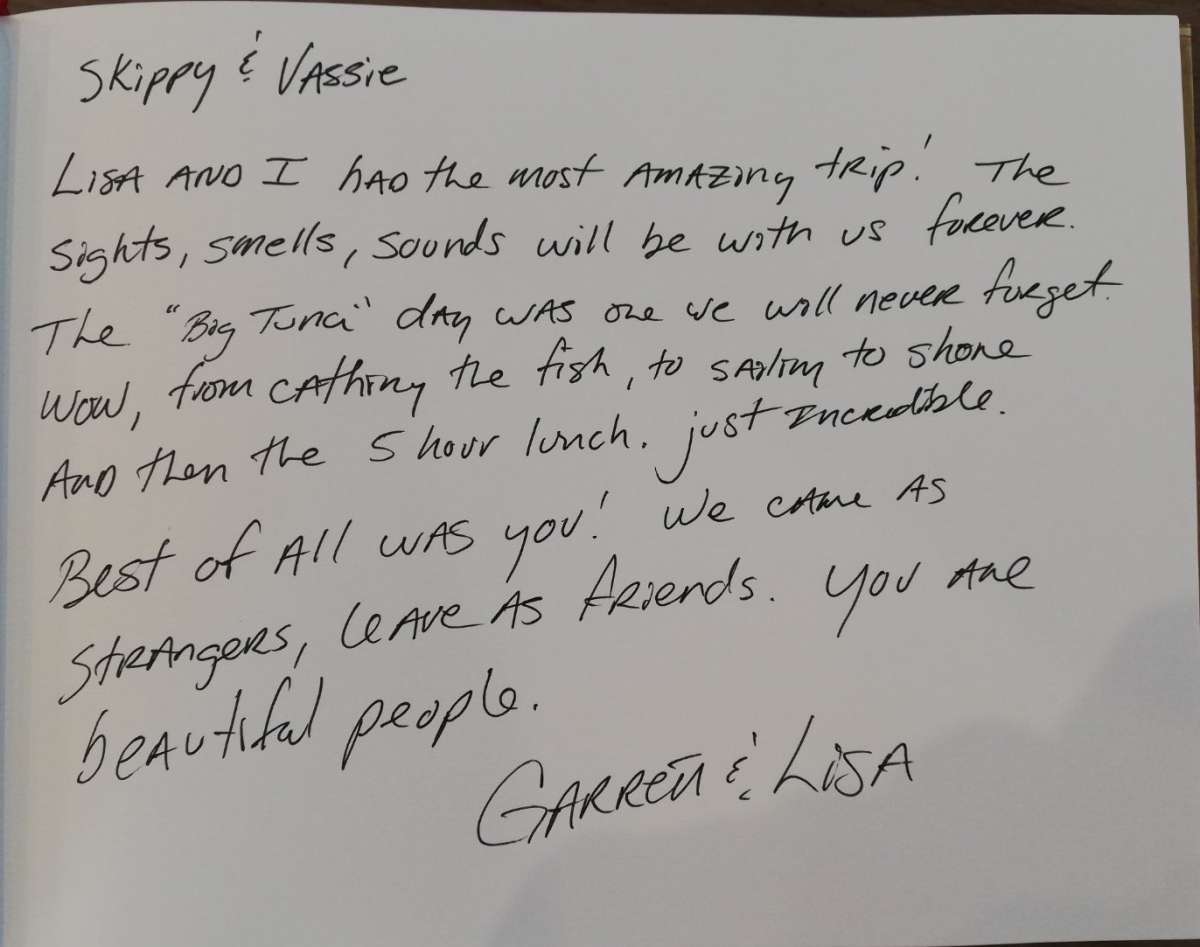 Skippy & Vassie
Lisa and I had the most amazing trip! The
sights, smells, sounds will be with us forever.
The "Big Tuna" day was one we will never forget.
Wow, from cathing the fish, to sailing to shore
And then the 5 hour lunch. just Incredible.
Best of All was you! We came as
strangers, leave as friends. You are
beautiful people.
Garrett & Lisa